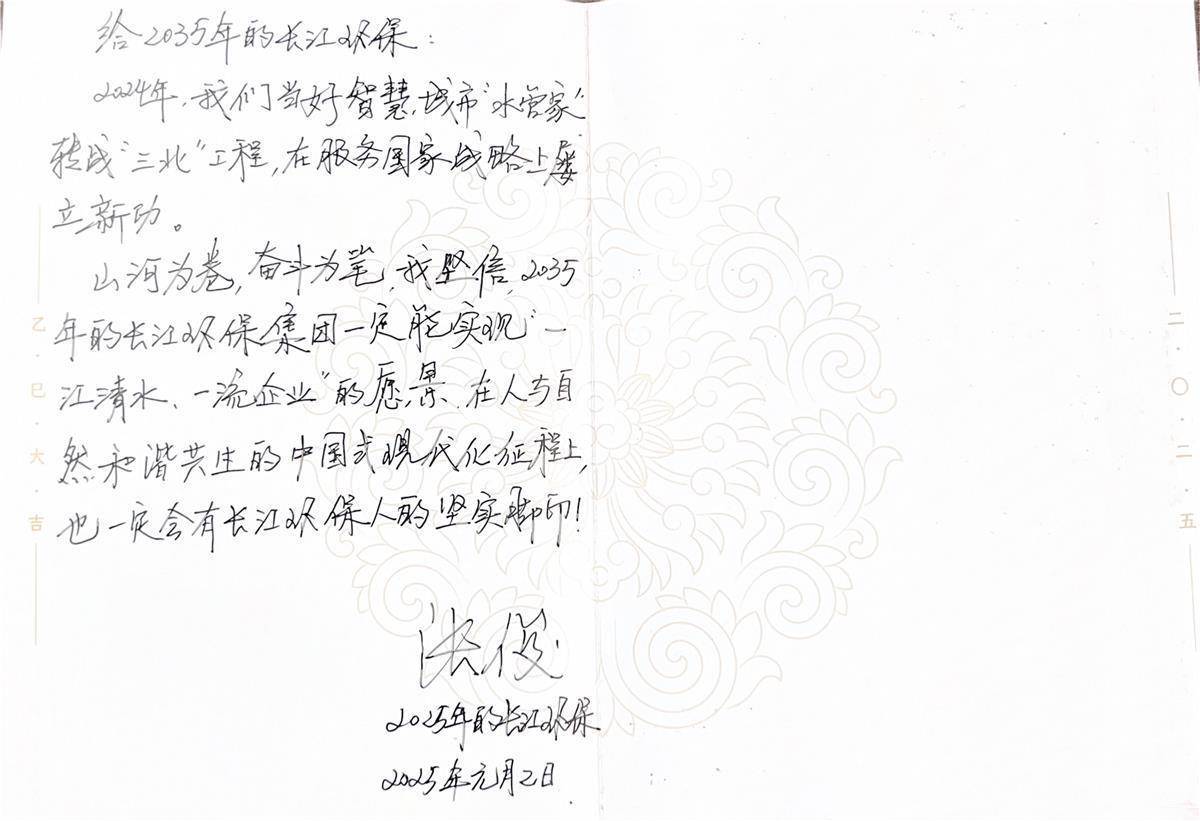 给2035年的长江环保：
2024年，我们当好智慧城市“水管家”
转战“三北”工程，在服务国家战略上屡
立新功。
山河为卷，奋斗为笔，我坚信，2035
年的长江环保集团一定能实现“一
江清水、一流企业”的愿景，在人与自
然和谐共生的中国式现代化征程上，
也一定会有长江环保人的坚实脚印！
张俊
2025年的长江环保
2025年元月乙日
乙·巳·大·吉
二·〇·二·五